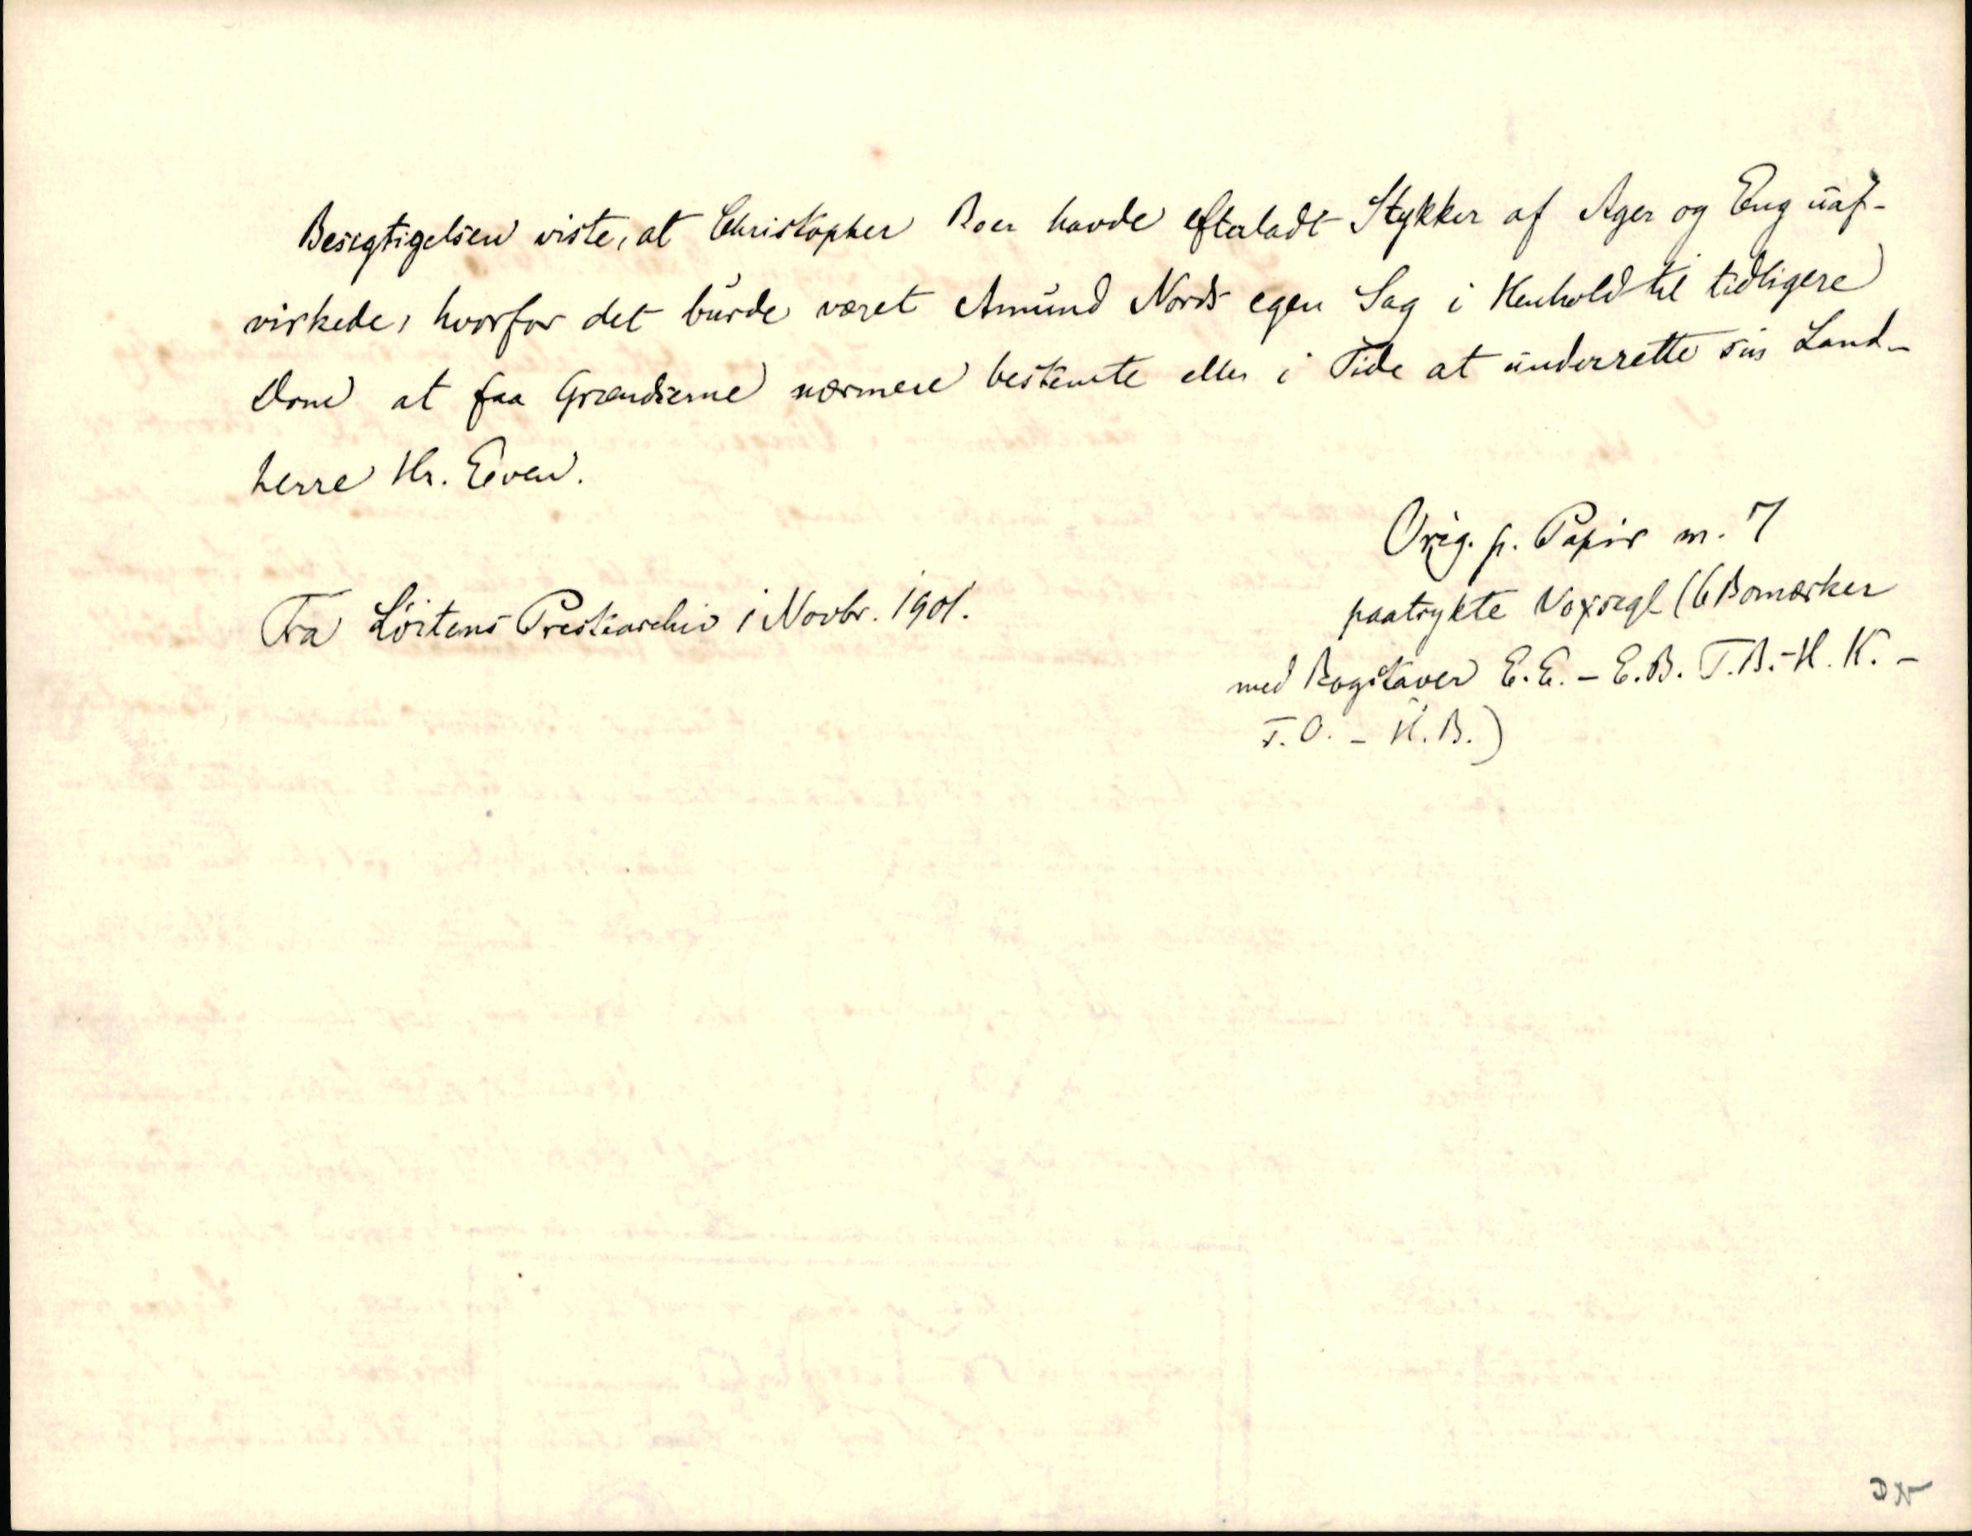 Besigtigelsen viste, at Christopher Boer havde efterladt Stykker af Ager og Eng uaf-
virkede, hvorfor det burde været Amund Nords egen Sag i Henhold til tidligere
Dom at faa Grændserne nærmere bestemte eller i Tide at underrette sin Land-
herre Hr. Even.
Orig. p. Papir m. 7
paatrykte Voxsegl (6 Bomærker
Fra Löitens Prestearchiv i Novbr. 1901.
med Bogstaver E.E. - E.B. T.B. - H.K. -
T.O. - H.B.)
DN